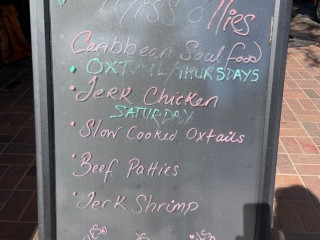 Miss Ollies
Caribbean Soul food
• OXTAIL/THURSDAYS
• Jerk Chicken
SATURDAY
• Slow Cooked Oxtails
• Beef Patties
• Jerk Shrimp